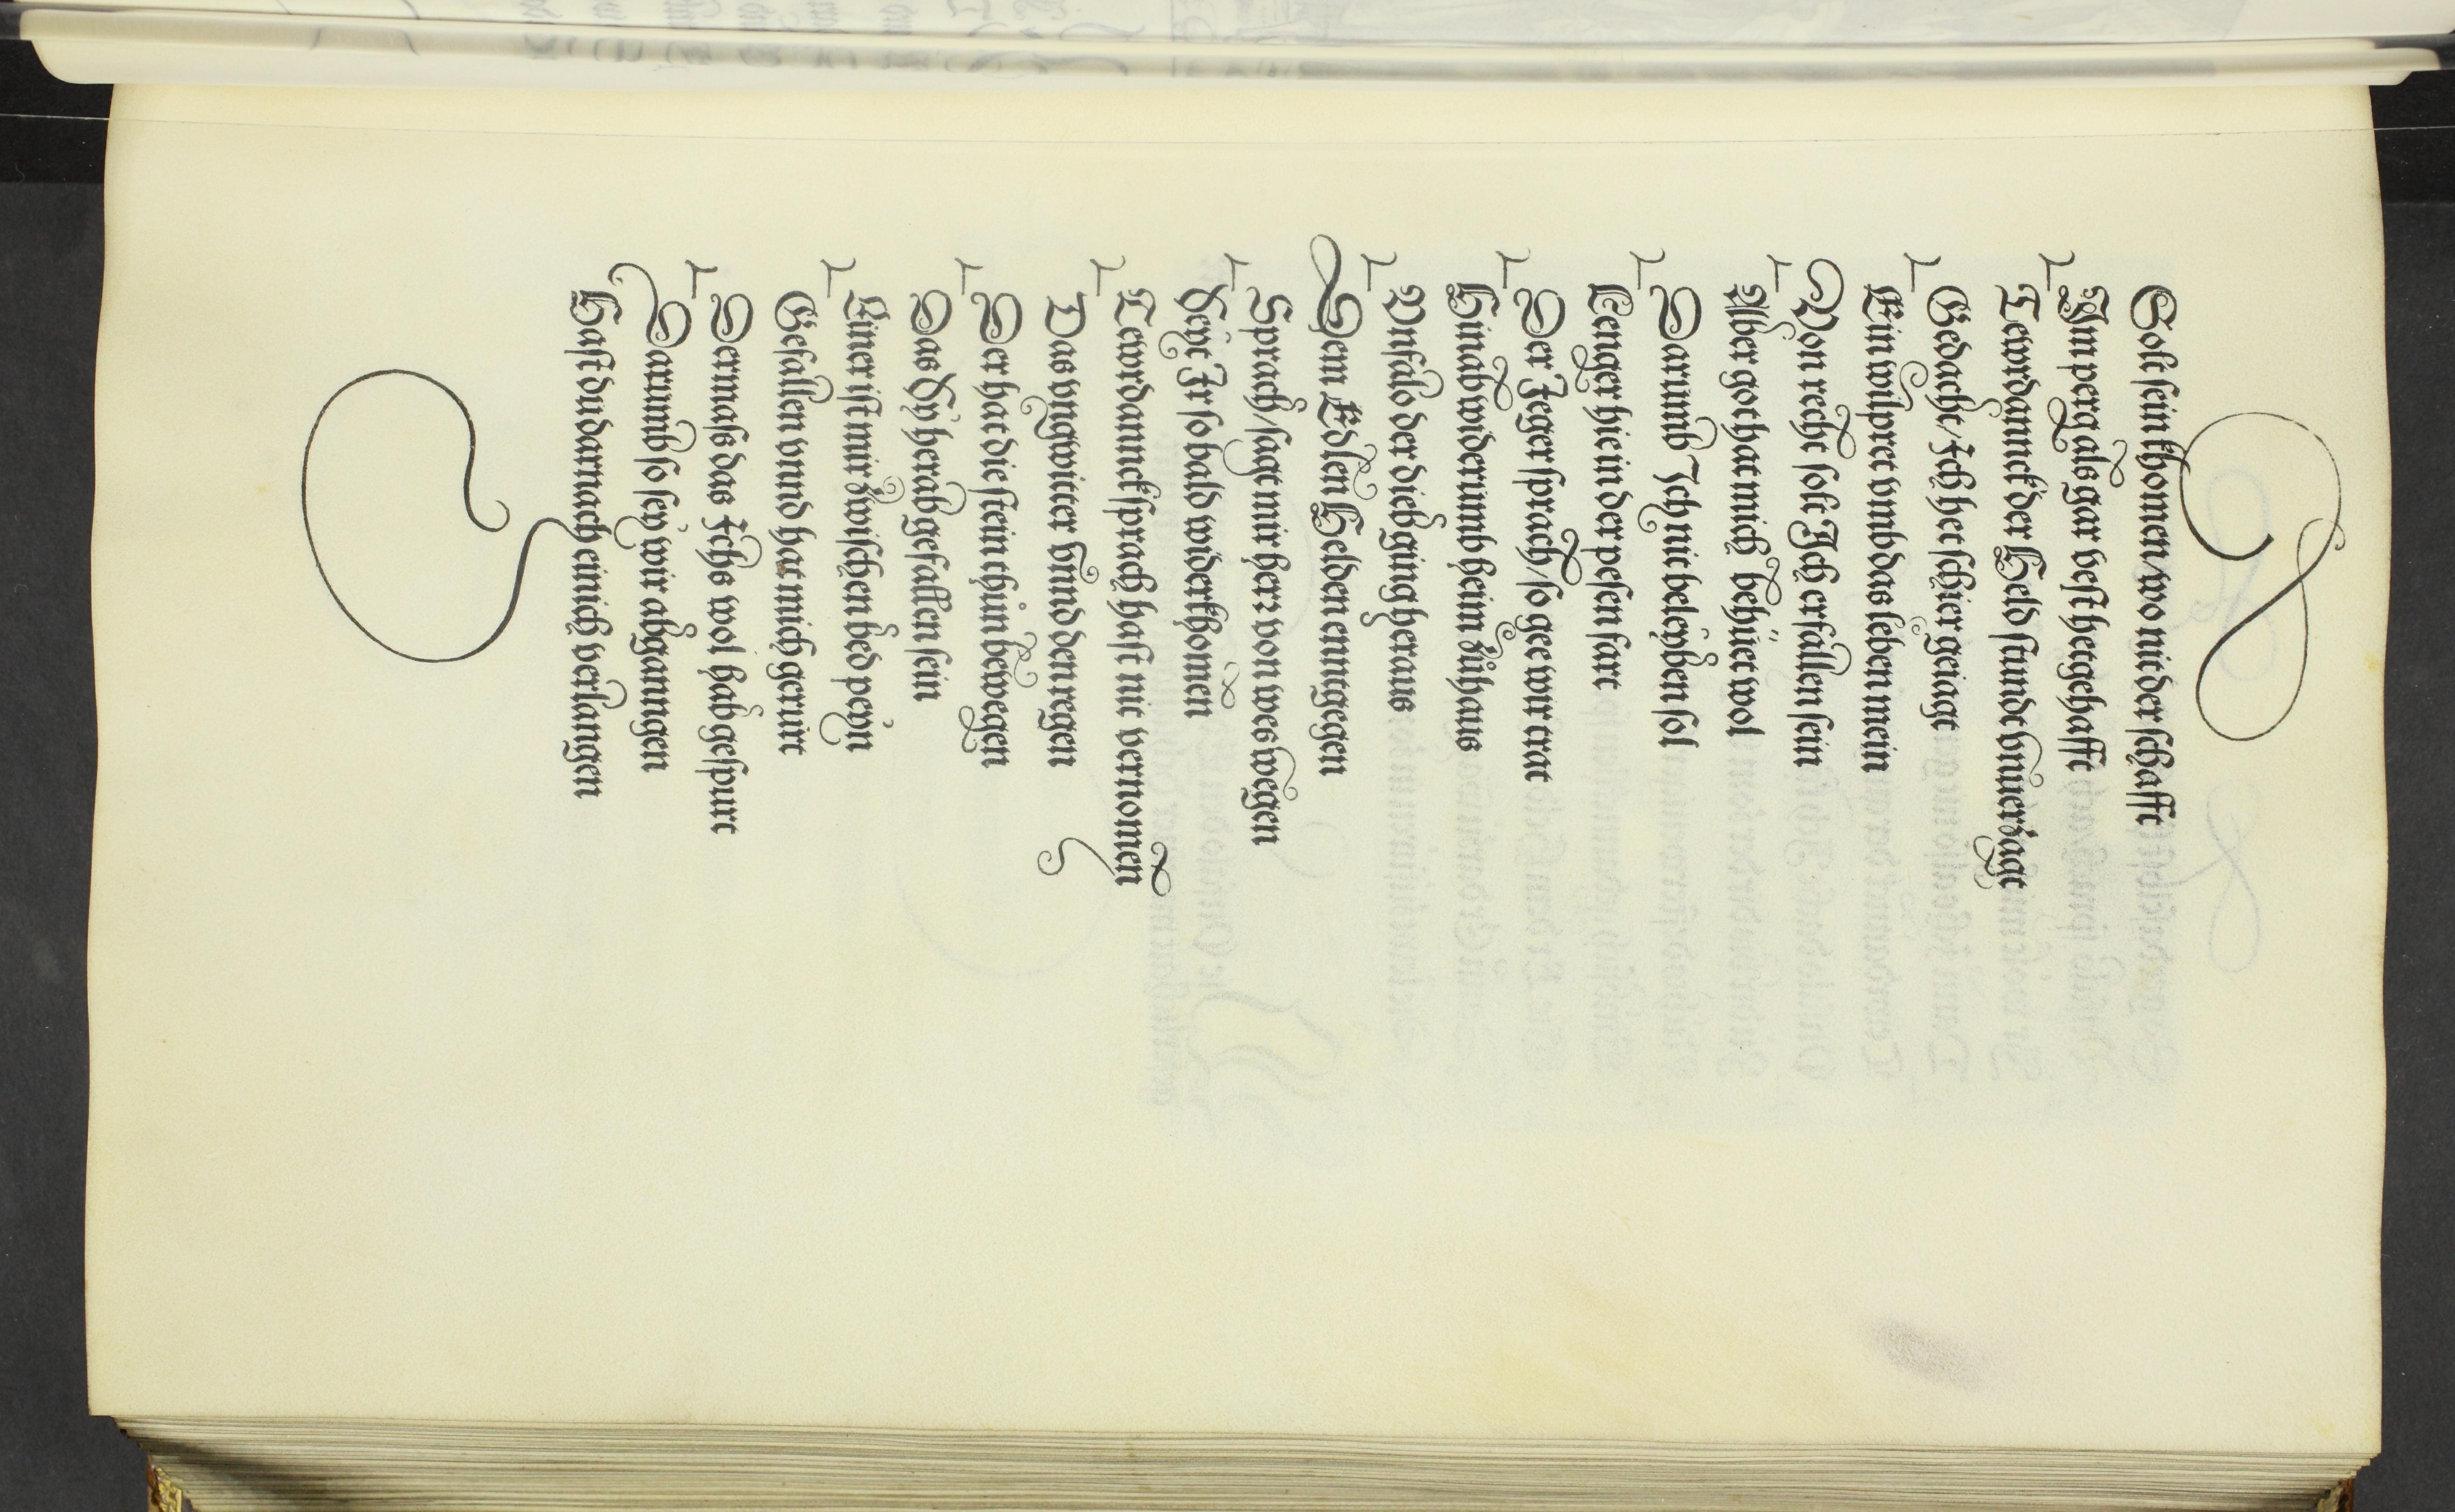 Solt sein khomen / wo nit der schafft
Im perg als gar vest het gehafft
Tewrdannck der Held stundt vnuerzagt
Gedacht / Ich het schier geiagt
Ein wilpret vmb das leben mein
Von recht solt Ich erfallen sein
Aber got hat mich behüet wol
Darumb Ich nit beleyben sol
Lenger hie in der pesen fart
Der Jeger sprach / so gee wir trat
Hinab widerumb heim zů haus
Vnfalo der dieb ging heraus
Dem Edlen Helden enntgegen
Sprach / sagt mir herr von wes wegen
Seyt Ir so bald widerkhomen
Tewrdannck sprach hast nit vernomen
Das vngwitter vnnd den regen
Der hat die stein thun bewegen
Das Sy herab gefallen sein
Einer ist mir zwischen bed peyn
Gefallen vnnd hat mich gerurt
Dermass das Ichs wol hab gespurt
Darumb so sey wir abganngen
Hast du darnach einich verlangen